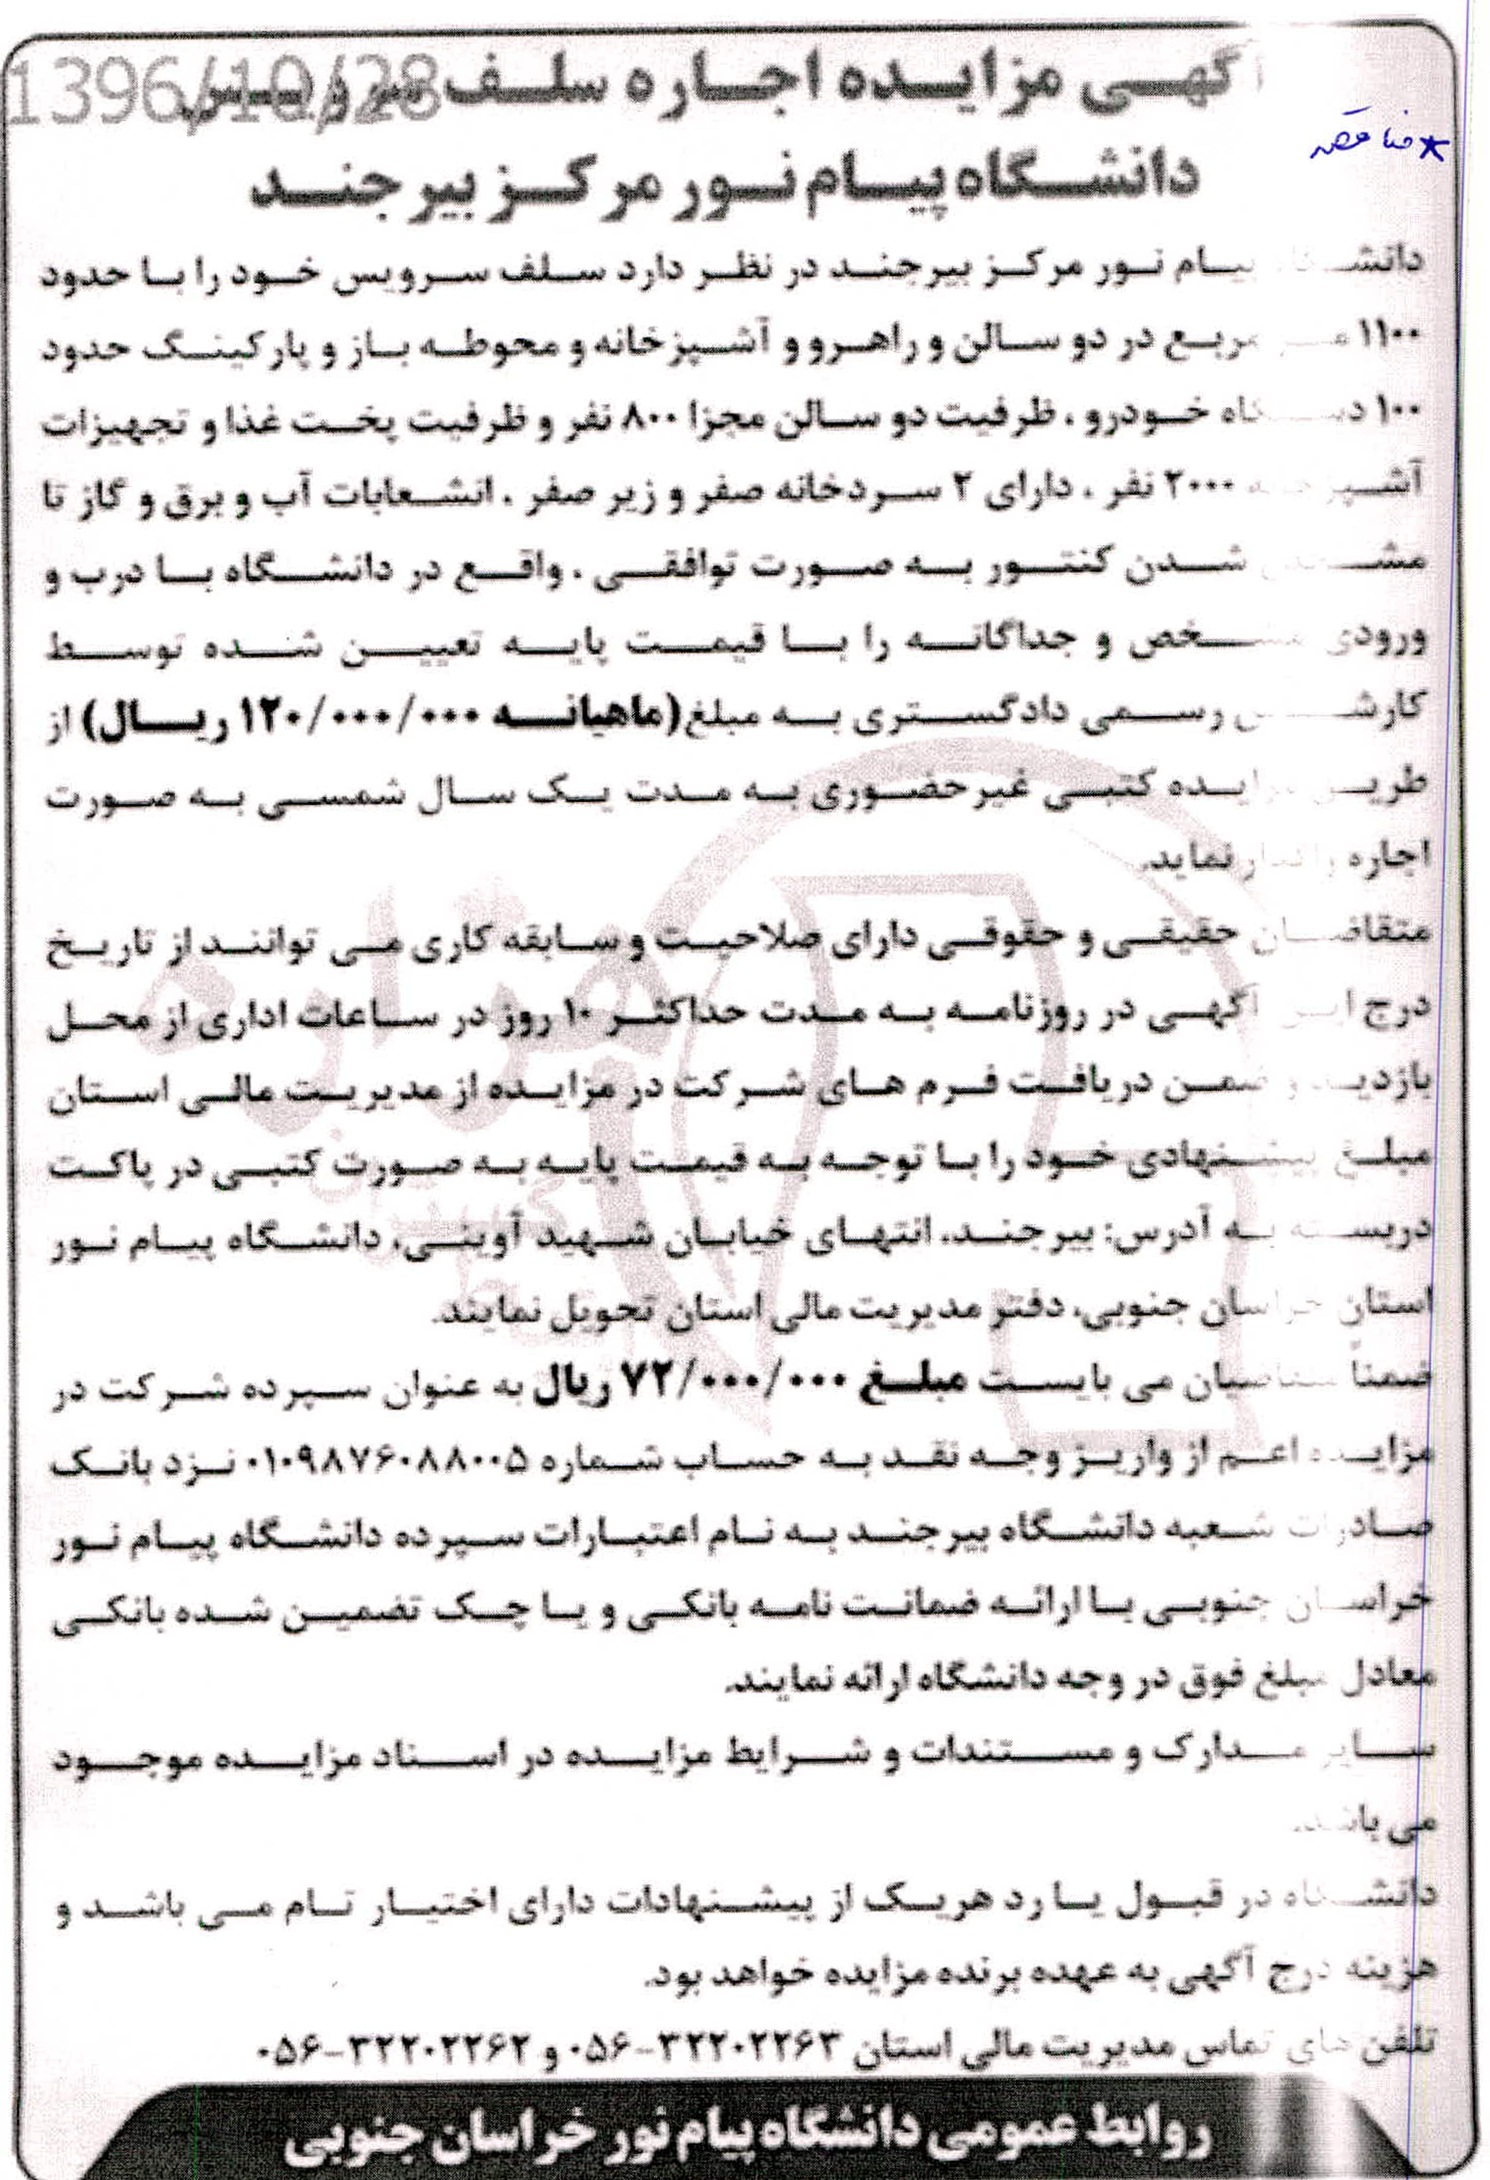 آگهی مزایده اجاره سلف سرویس
1396/10/28
دانشگاه پیام نور مرکز بیرجند
٭مناقصه
دانشگاه پیام نور مرکز بیرجند در نظر دارد سلف سرویس خود را با حدود
۱۱۰۰ متر مربع در دو سالن و راهرو و آشپزخانه و محوطه باز و پارکینگ حدود
۱۰۰ دستگاه خودرو ، ظرفیت دو سالن مجزا ۸۰۰ نفر و ظرفیت پخت غذا و تجهیزات
آشپزخانه ۲۰۰۰ نفر ، دارای ۲ سردخانه صفر و زیر صفر ، انشعابات آب و برق و گاز تا
مشخص شدن کنتور به صورت توافقی ، واقع در دانشگاه با درب و
ورودی مشخص و جداگانه را با قیمت پایه تعیین شده توسط
کارشناس رسمی دادگستری به مبلغ (ماهیانه ۱۲۰/۰۰۰/۰۰۰ ریال) از
طریق مزایده کتبی غیرحضوری به مدت یک سال شمسی به صورت
اجاره واگذار نماید.
متقاضیان حقیقی و حقوقی دارای صلاحیت و سابقه کاری می توانند از تاریخ
درج این آگهی در روزنامه به مدت حداکثر ۱۰ روز در ساعات اداری از محل
بازدید و ضمن دریافت فرم های شرکت در مزایده از مدیریت مالی استان
مبلغ پیشنهادی خود را با توجه به قیمت پایه به صورت کتبی در پاکت
دربسته به آدرس: بیرجند، انتهای خیابان شهید آوینی، دانشگاه پیام نور
استان خراسان جنوبی، دفتر مدیریت مالی استان تحویل نمایند.
ضمناً متقاضیان می بایست مبلغ ۷۲/۰۰۰/۰۰۰ ریال به عنوان سپرده شرکت در
مزایده اعم از واریز وجه نقد به حساب شماره ۰۱۰۹۸۷۶۰۸۸۰۰۵ نزد بانک
صادرات شعبه دانشگاه بیرجند به نام اعتبارات سپرده دانشگاه پیام نور
خراسان جنوبی یا ارائه ضمانت نامه بانکی و یا چک تضمین شده بانکی
معادل مبلغ فوق در وجه دانشگاه ارائه نمایند.
سایر مدارک و مستندات و شرایط مزایده در اسناد مزایده موجود
می باشد.
دانشگاه در قبول یا رد هریک از پیشنهادات دارای اختیار تام می باشد و
هزینه درج آگهی به عهده برنده مزایده خواهد بود.
تلفن های تماس مدیریت مالی استان ۳۲۲۰۲۲۶۳-۰۵۶ و ۳۲۲۰۲۲۶۲-۰۵۶
روابط عمومی دانشگاه پیام نور خراسان جنوبی